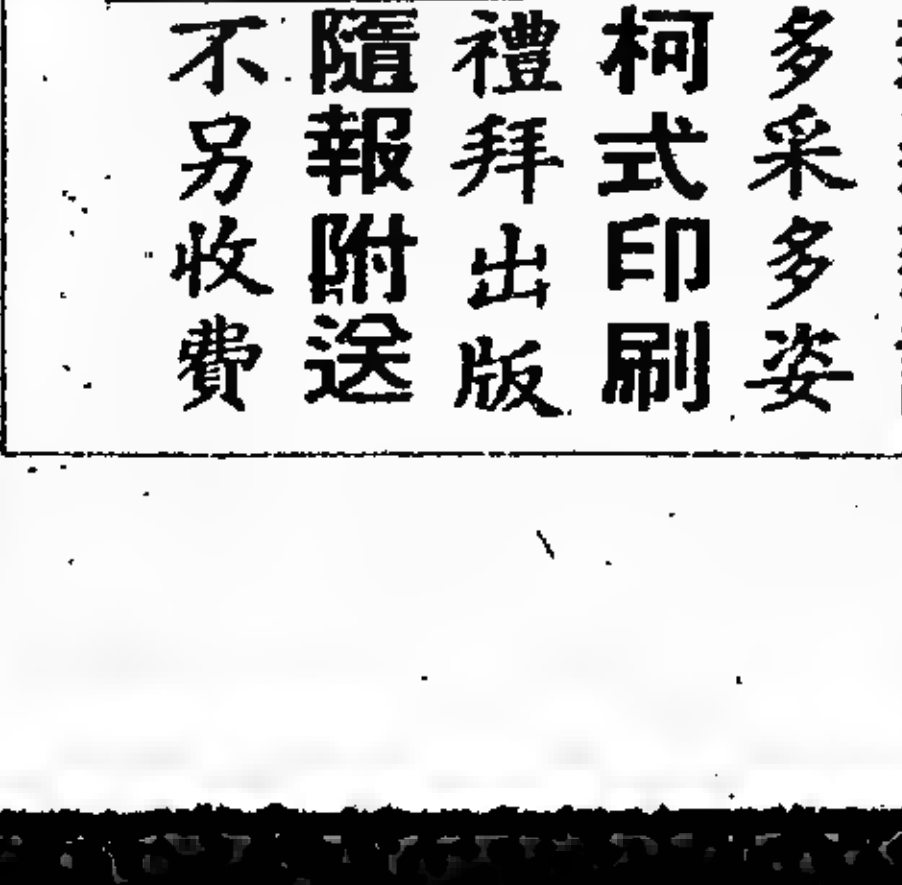 多采多姿
柯式印刷
禮拜出版
隨報附送
不另收費